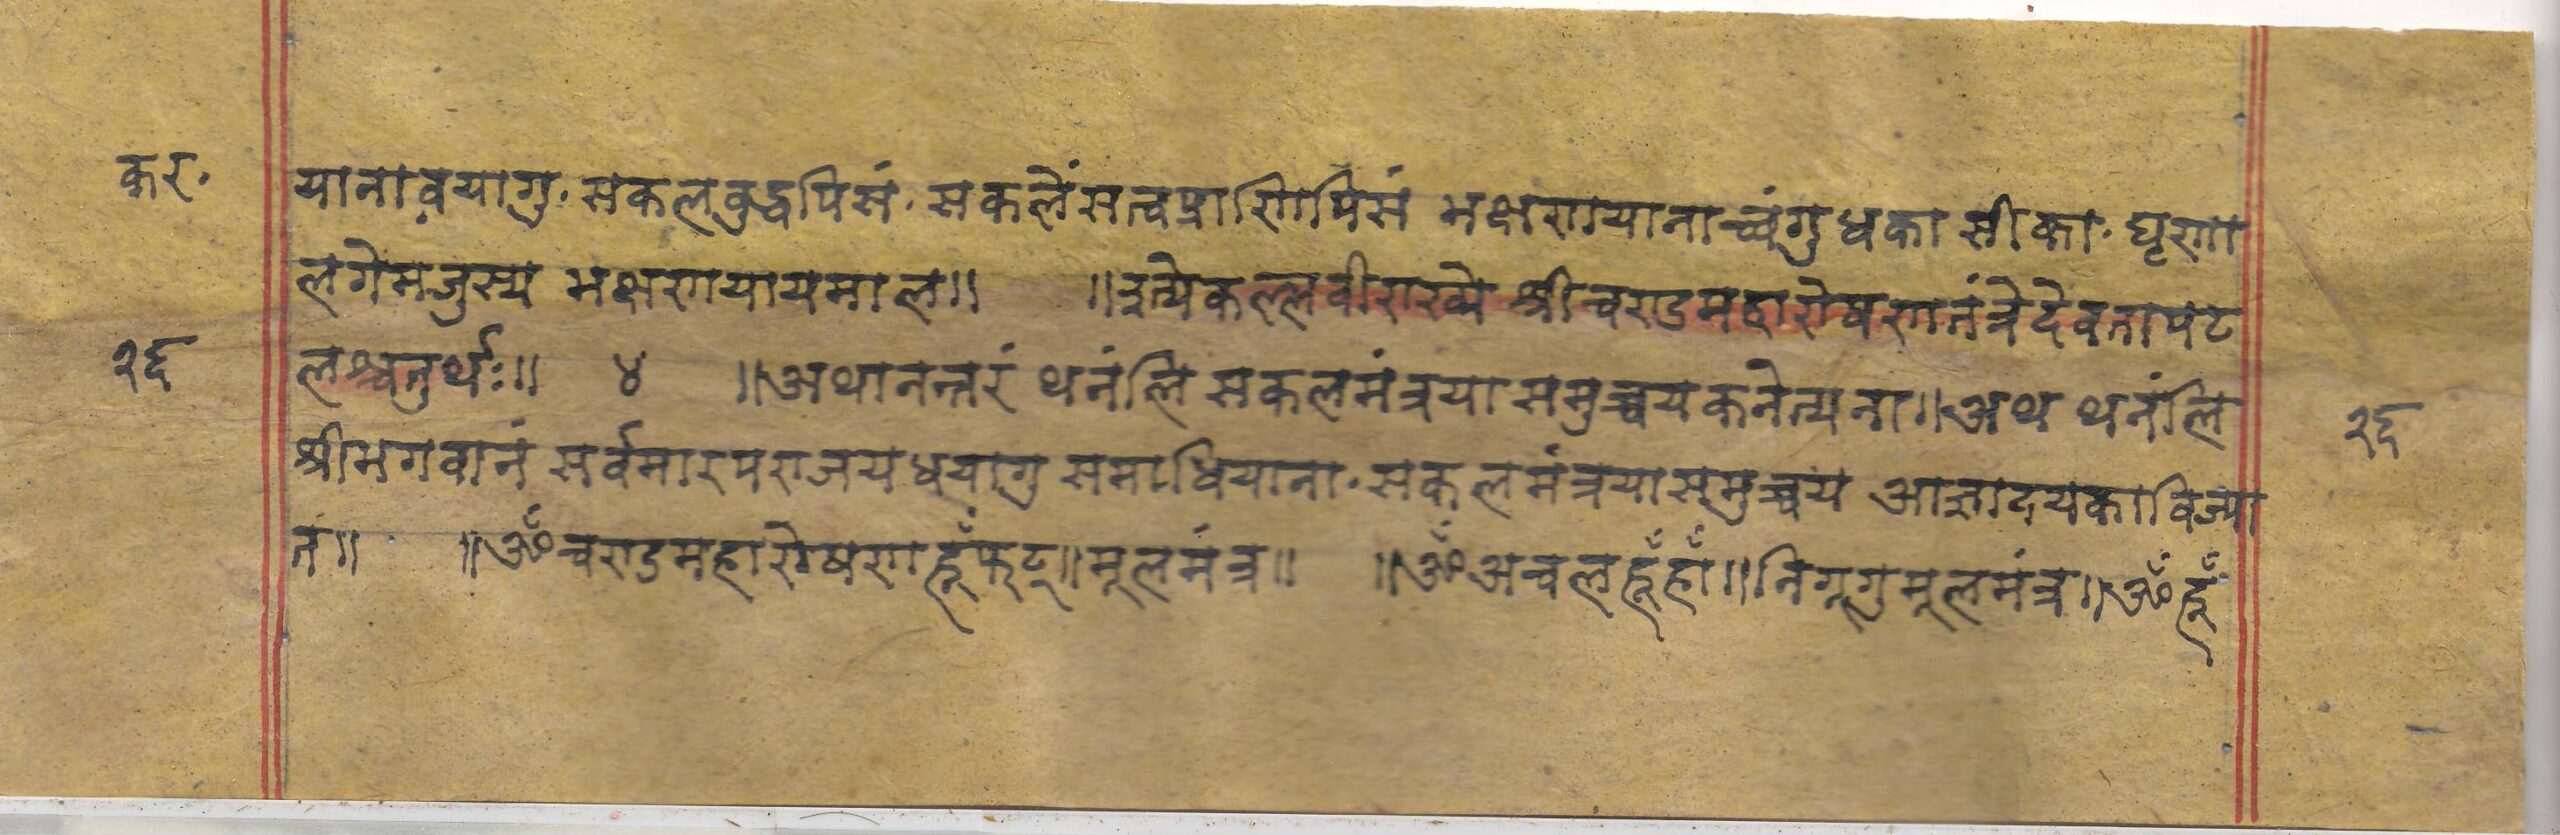 कर. यानावयागु. सकलबुद्धपिसं. सकलेंसत्वप्राणिपिसं भक्षणयानाच्वंगुधका सीका. घृणा
लगेमजुस्य भक्षणयायमाल॥ ॥इत्येकल्लवीराख्ये श्रीचण्डमहारोषणतंत्रे देवतापट
२६ लश्चतुर्थः॥ ४ ॥अथानन्तरं थनंलि सकलमंत्रया समुच्चयकनेत्यना॥ अथ थनंलि २६
श्रीभगवानं सर्वमारपराजयधयागु समाधियाना. सकलमंत्रयासमुच्चय आज्ञादयकाविज्या
त॥ ॥ॐ चण्डमहारोषण हूँ फट्॥ मूलमंत्र॥ ॥ॐ अचल हूँ हाँ॥ निगूगु मूलमंत्र॥ ॐ हूँ